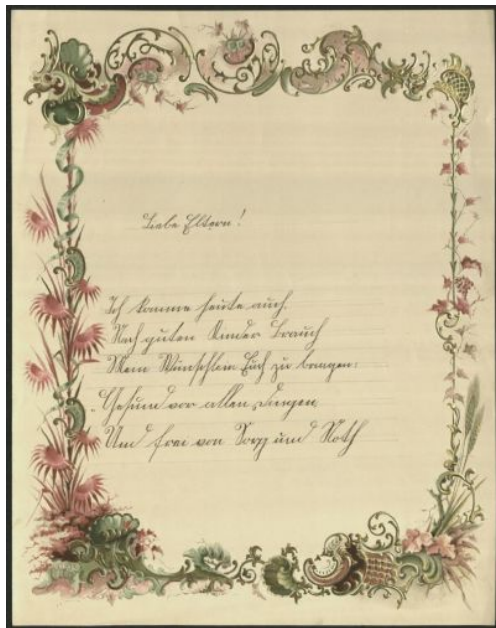 Liebe Eltern!
Ich komme heute auch.
Nach guten Kinder Brauch
Mein Wünschlein Euch zu bringen:
Gesund vor allen Dingen,
Und frei von Sorg und Noth